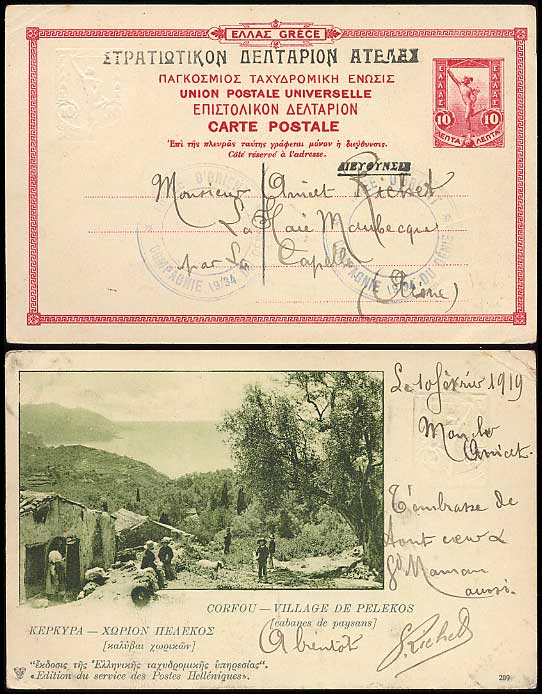 ΕΛΛΑΣ GRÈCE
ΣΤΡΑΤΙΩΤΙΚΟΝ ΔΕΛΤΑΡΙΟΝ ΑΤΕΛΕΣ
ΠΑΓΚΟΣΜΙΟΣ ΤΑΧΥΔΡΟΜΙΚΗ ΕΝΩΣΙΣ
UNION POSTALE UNIVERSELLE
ΕΠΙΣΤΟΛΙΚΟΝ ΔΕΛΤΑΡΙΟΝ
CARTE POSTALE
Ἐπὶ τῆς πλευρᾶς ταύτης γράφεται μόνον ἡ διεύθυνσις.
Côté réservé à l'adresse.
ΕΛΛΑΣ
ΕΛΛΑΣ
10 10
ΛΕΠΤΑ ΛΕΠΤΑ
ΔΙΕΥΘΥΝΣΙΣ
Monsieur Anicet Richet
La Haie Maubecque
par La Capelle
(Aisne)
COMPAGNIE 19/34
COMPAGNIE 19/34 DU GÉNIE
Le 10 février 1919
Mon cher
Anicet.
T'embrasse de
tout cœur &
Gd Maman
aussi.
A bientôt
Richet
CORFOU — VILLAGE DE PELEKOS
[cabanes de paysans]
ΚΕΡΚΥΡΑ — ΧΩΡΙΟΝ ΠΕΛΕΚΟΣ
[καλύβαι χωρικῶν]
"ἔκδοσις τῆς Ἑλληνικῆς ταχυδρομικῆς ὑπηρεσίας".
«Edition du service des Postes Helléniques».
209